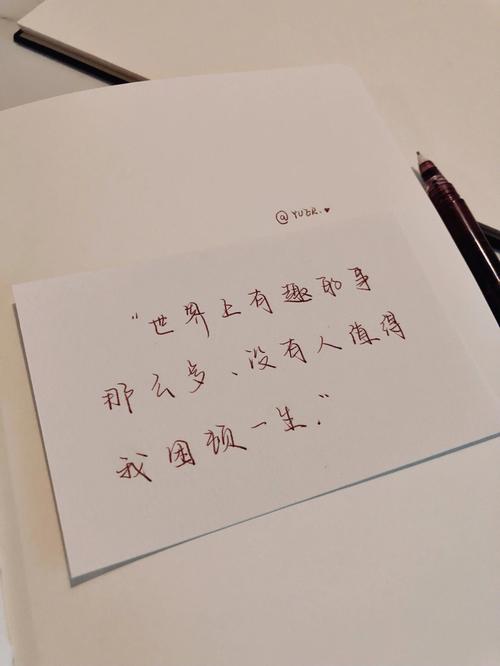 @YUZR.♥
"世界上有趣的事
那么多、没有人值得
我困顿一生."